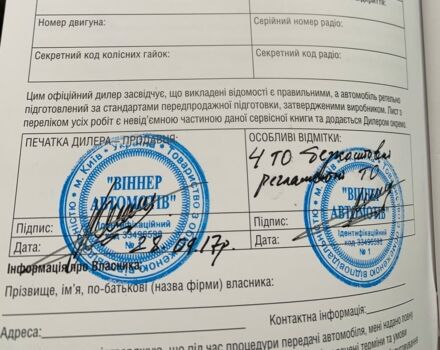 Номер двигуна:
Серійний номер радіо:
Секретний код колісних гайок:
Секретний код радіо:
Цим офіційний дилер засвідчує, що викладені відомості є правильними, а автомобіль ретельно
підготовлений за стандартами передпродажної підготовки, затвердженими виробником. Лист з
переліком усіх робіт є невід'ємною частиною даної сервісної книги та додається Дилером окремо.
ПЕЧАТКА ДИЛЕРА – ПРОДАВЦЯ:
ОСОБЛИВІ ВІДМІТКИ:
4 ТО безкоштовні
регламентні ТО
м. Київ • Україна • Товариство з обмеженою відповідальністю
"ВІННЕР
АВТОМОТІВ"
Ідентифікаційний
код 33496598
№
"ВІННЕР
АВТОМОТІВ"
Ідентифікаційний
код 33496598
№ 1
Підпис:
Підпис:
Дата: 28.09.17р.
Дата:
Інформація про Власника
Прізвище, ім'я, по-батькові (назва фірми) власника:
Контактна інформація:
Адреса:
що під час процедури передачі автомобіля, мені надано повну
терміни та умови